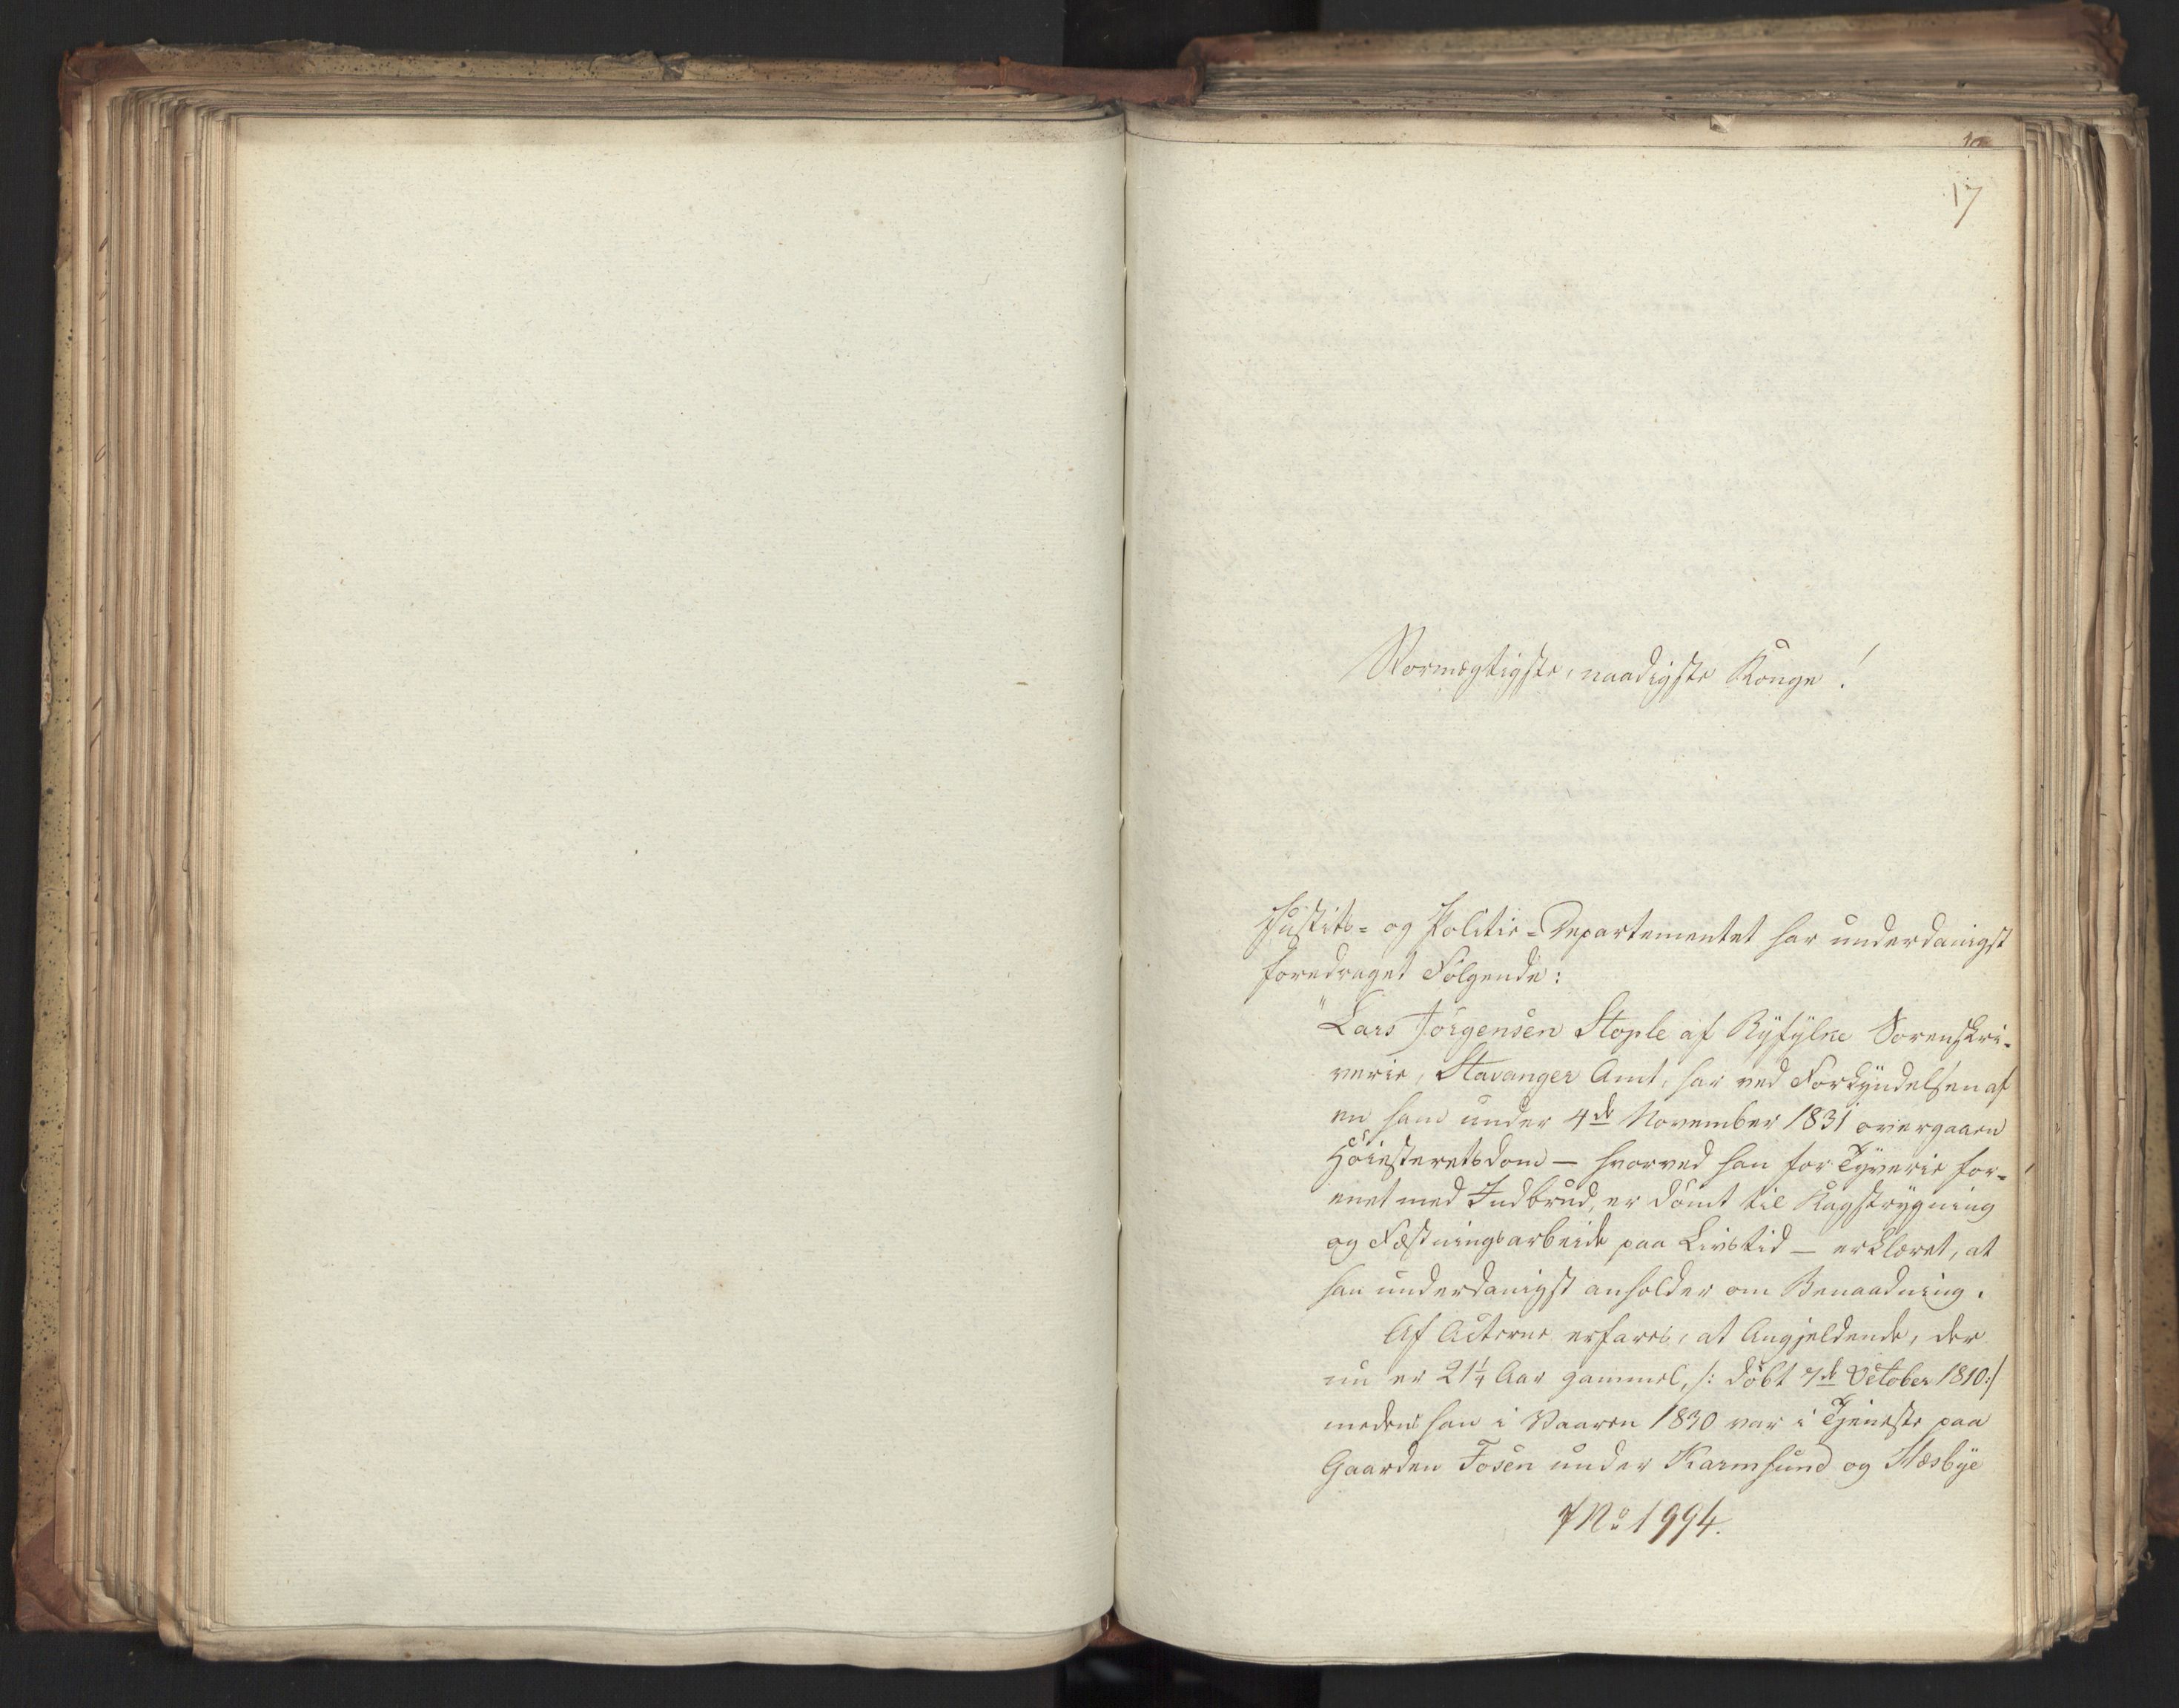 17
Stormægtigste, naadigste Konge!
Justits- og Politie-Departementet har underdanigst
foredraget Følgende:
"Lars Jörgensen Stople af Ryfylke Sorenskri-
verie, Stavanger Amt, har ved Forkyndelsen af
en ham under 4de November 1831 overgaaen
Höiesteretsdom — hvorved han for Tyverie for-
enet med Indbrud, er dömt til Kagstrygning
og Fæstningsarbeide paa Livstid — erklæret, at
han underdanigst anholder om Benaadning.
Af Acterne erfares, at Angjeldende, der
nu er 21¼ Aar gammel, /: döbt 7de October 1810:/
medens han i Vaaren 1830 var i Tjeneste paa
Gaarden Fosen under Karmsund og Hæsbye
No 1994.